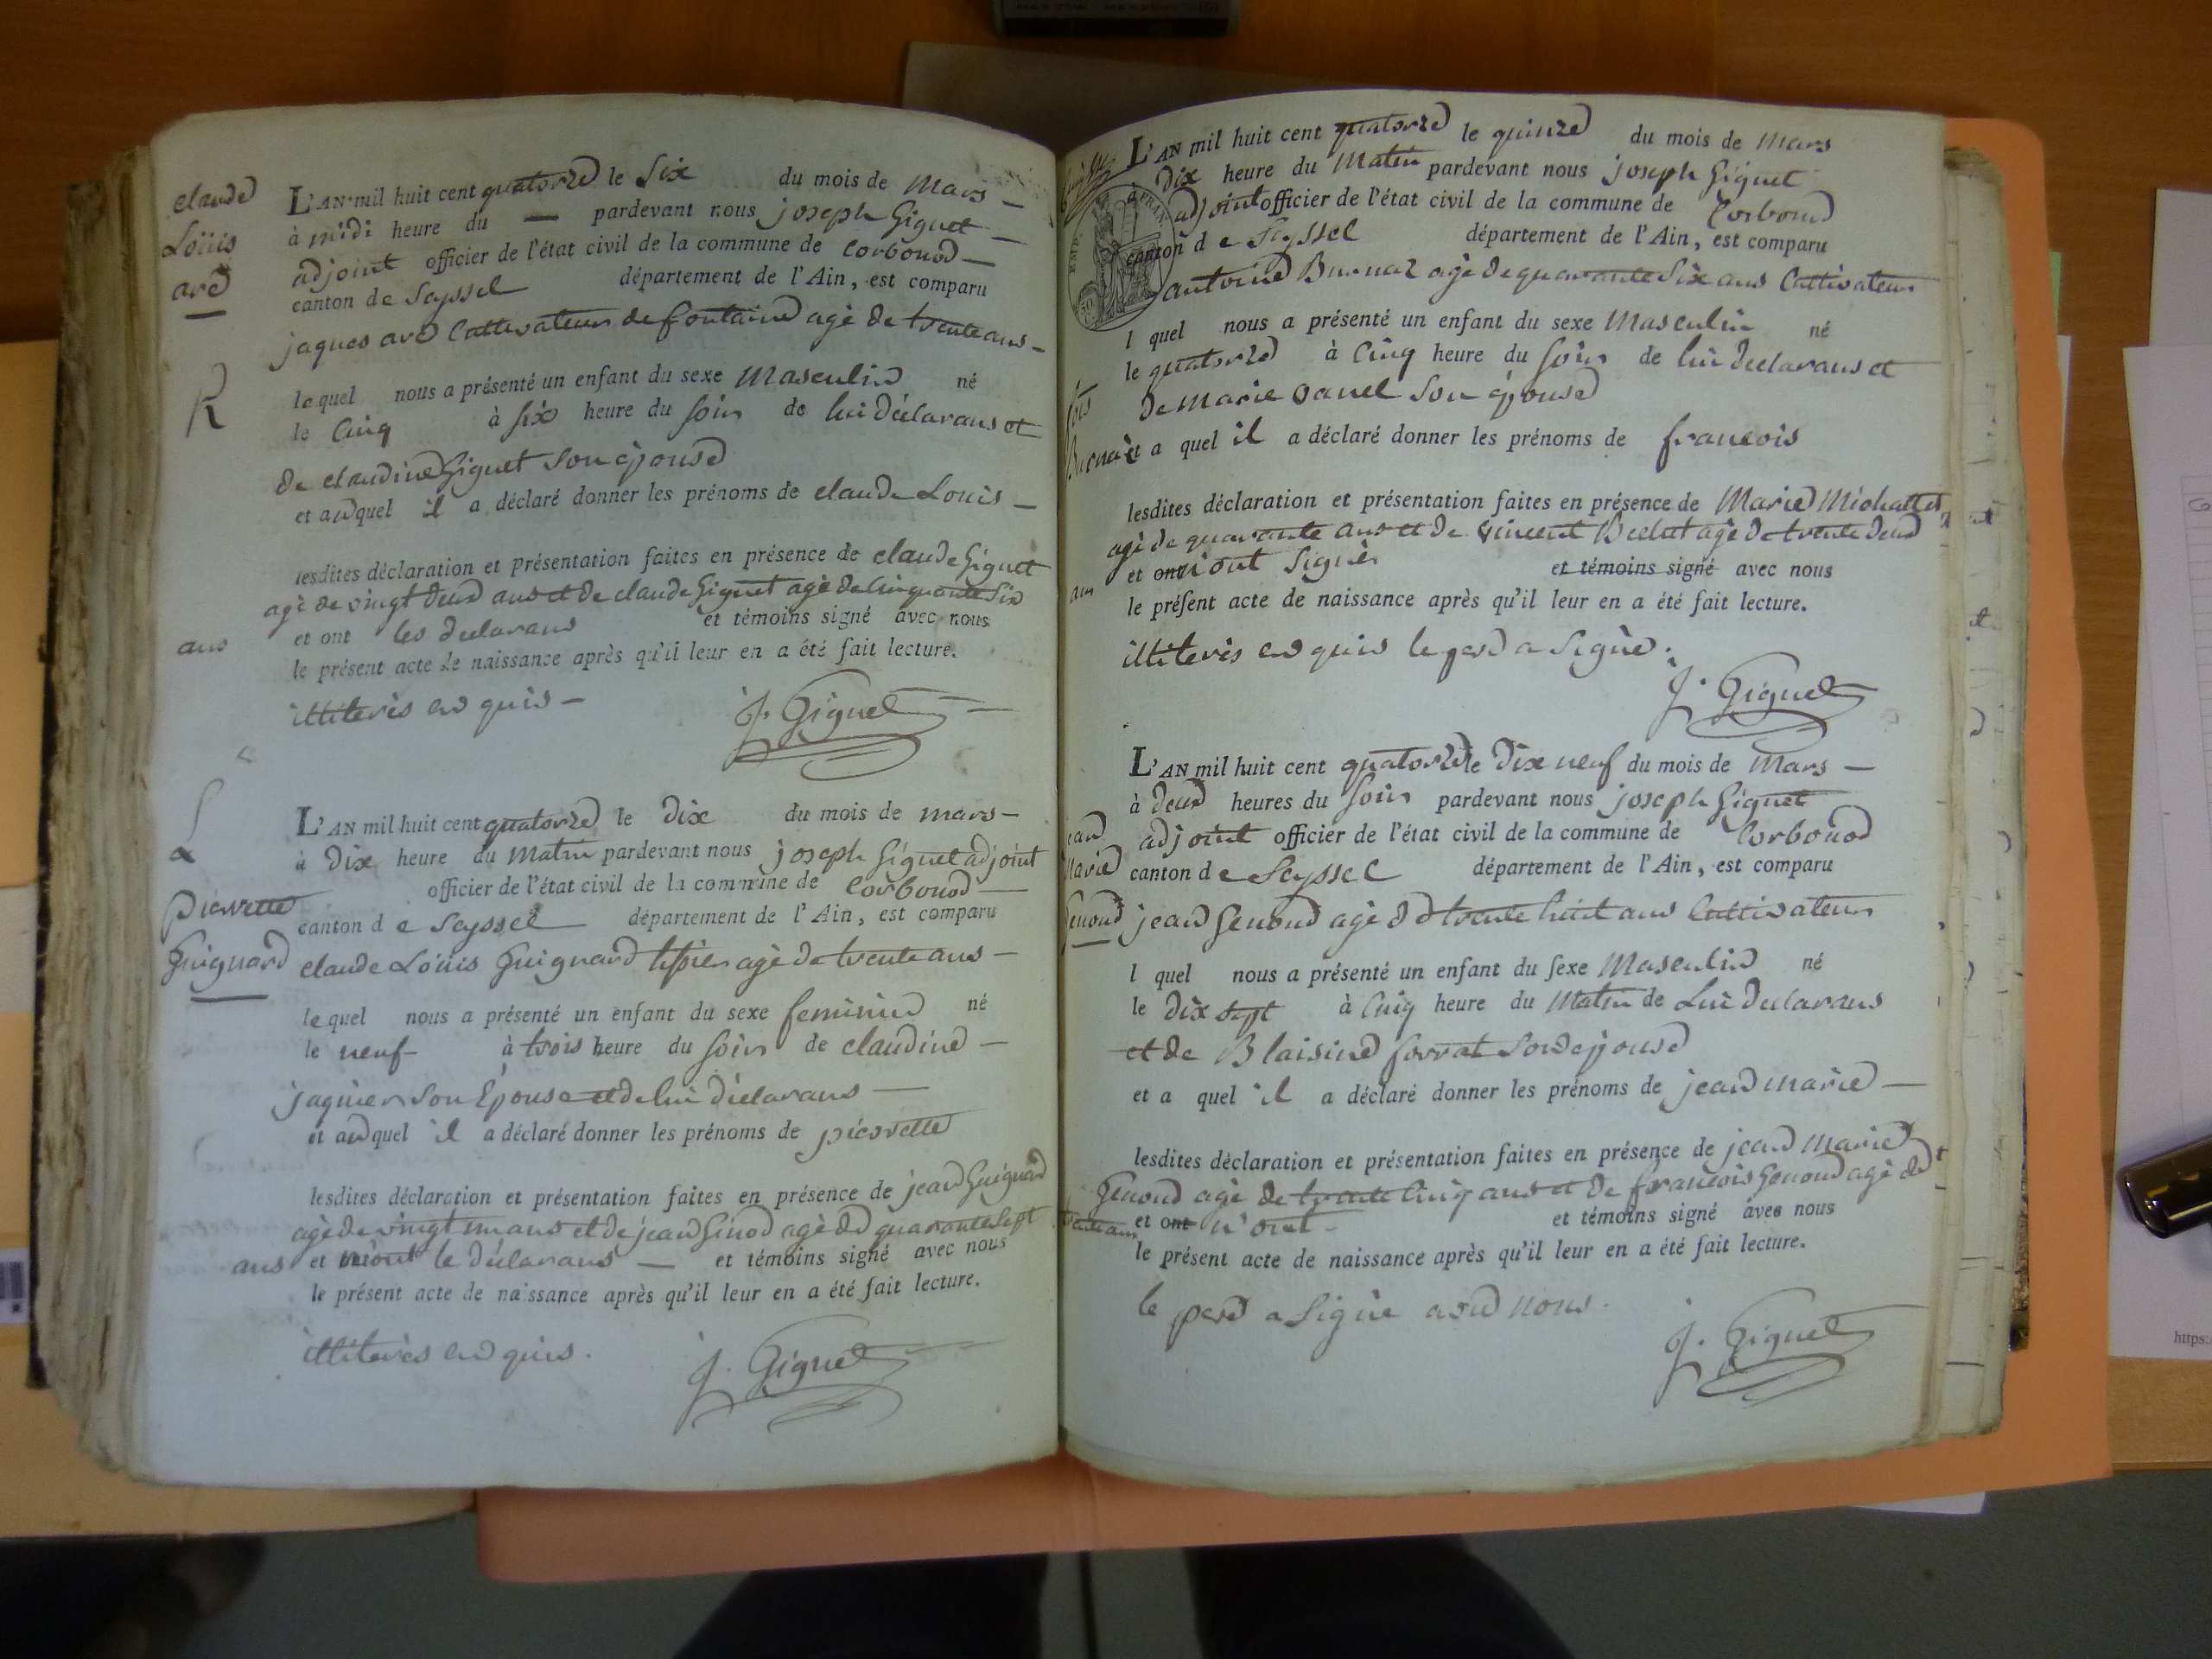 claude
Loüis
are
R
L'AN mil huit cent quatorze le Six du mois de Mars
à midi heure du — pardevant nous joseph Giguet
adjoint officier de l'état civil de la commune de Corbonod
canton de Seyssel département de l'Ain, est comparu
jaques are Cultivateur de fontaine agé de trente ans
lequel nous a présenté un enfant du sexe Masculin né
le Cinq à six heure du soir de lui déclarans et
de claudine Giguet son épouse
et auquel il a déclaré donner les prénoms de claude Louis
lesdites déclaration et présentation faites en présence de claude Giguet
agé de vingt deux ans et de claude Giguet agé de Cinquante Six
ans et ont les declarans et témoins signé avec nous
le présent acte de naissance après qu'il leur en a été fait lecture.
illiterés en quis
J. Giguet
Pierrette
Guignard
L'AN mil huit cent quatorze le Dix du mois de mars
à Dix heure du Matin pardevant nous joseph Giguet adjoint
officier de l'état civil de la commune de Corbonod
canton de Seyssel département de l'Ain, est comparu
claude Loüis Guignard agé de trente ans
lequel nous a présenté un enfant du sexe feminine né
le neuf à trois heure du soir de claudine
jaquier son Épouse et de lui déclarans
et auquel il a déclaré donner les prénoms de pierrette
lesdites déclaration et présentation faites en présence de jean Guignard
agé de vingt un ans et de jean Ginod agé de quarante Sept
ans et n'ont le déclarans et témoins signé avec nous
le présent acte de naissance après qu'il leur en a été fait lecture.
illiterés en quis.
J. Giguet
L'AN mil huit cent quatorze le quinze du mois de Mars
à Dix heure du Matin pardevant nous joseph Giguet
adjoint officier de l'état civil de la commune de Corbonod
canton de Seyssel département de l'Ain, est comparu
antoine Burnaz agé de quarante Six ans Cultivateur
l quel nous a présenté un enfant du sexe Masculin né
le quatorze à Cinq heure du soir de lui declarans et
de Marie vanel son épouse
et a quel il a déclaré donner les prénoms de francois
lesdites déclaration et présentation faites en présence de Marie
agé de quarante ans et de vincent agé de trente deux
ans et ont n'ont signér et témoins signé avec nous
le présent acte de naissance après qu'il leur en a été fait lecture.
illiterés en quis le pere a Signé.
J. Giguet
jean
Marie
Genoud
L'AN mil huit cent quatorze le Dix neuf du mois de Mars
à deux heures du soir pardevant nous joseph Giguet
adjoint officier de l'état civil de la commune de Corbonod
canton de Seyssel département de l'Ain, est comparu
jean Genoud agé de trente huit ans Cultivateur
l quel nous a présenté un enfant du sexe Masculin né
le Dix sept à Cinq heure du Matin de Lui declarans
et de Blaisine forrat son épouse
et a quel il a déclaré donner les prénoms de jean marie
lesdites déclaration et présentation faites en présence de jean Marie
Genoud agé de trente Cinq ans et de francois Genoud agé de
trente ans et ont n'ont et témoins signé avec nous
le présent acte de naissance après qu'il leur en a été fait lecture.
le pere a Signé avec nous.
J. Giguet
https: